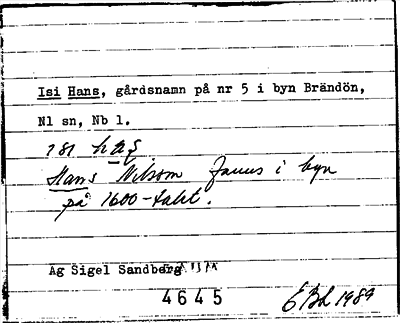 Isi Hans, gårdsnamn på nr 5 i byn Brändön,
Nl sn, Nb l.
Hans Nilsson fanns i byn
på 1600-talet.
Ag Sigel Sandberg
4645
1989